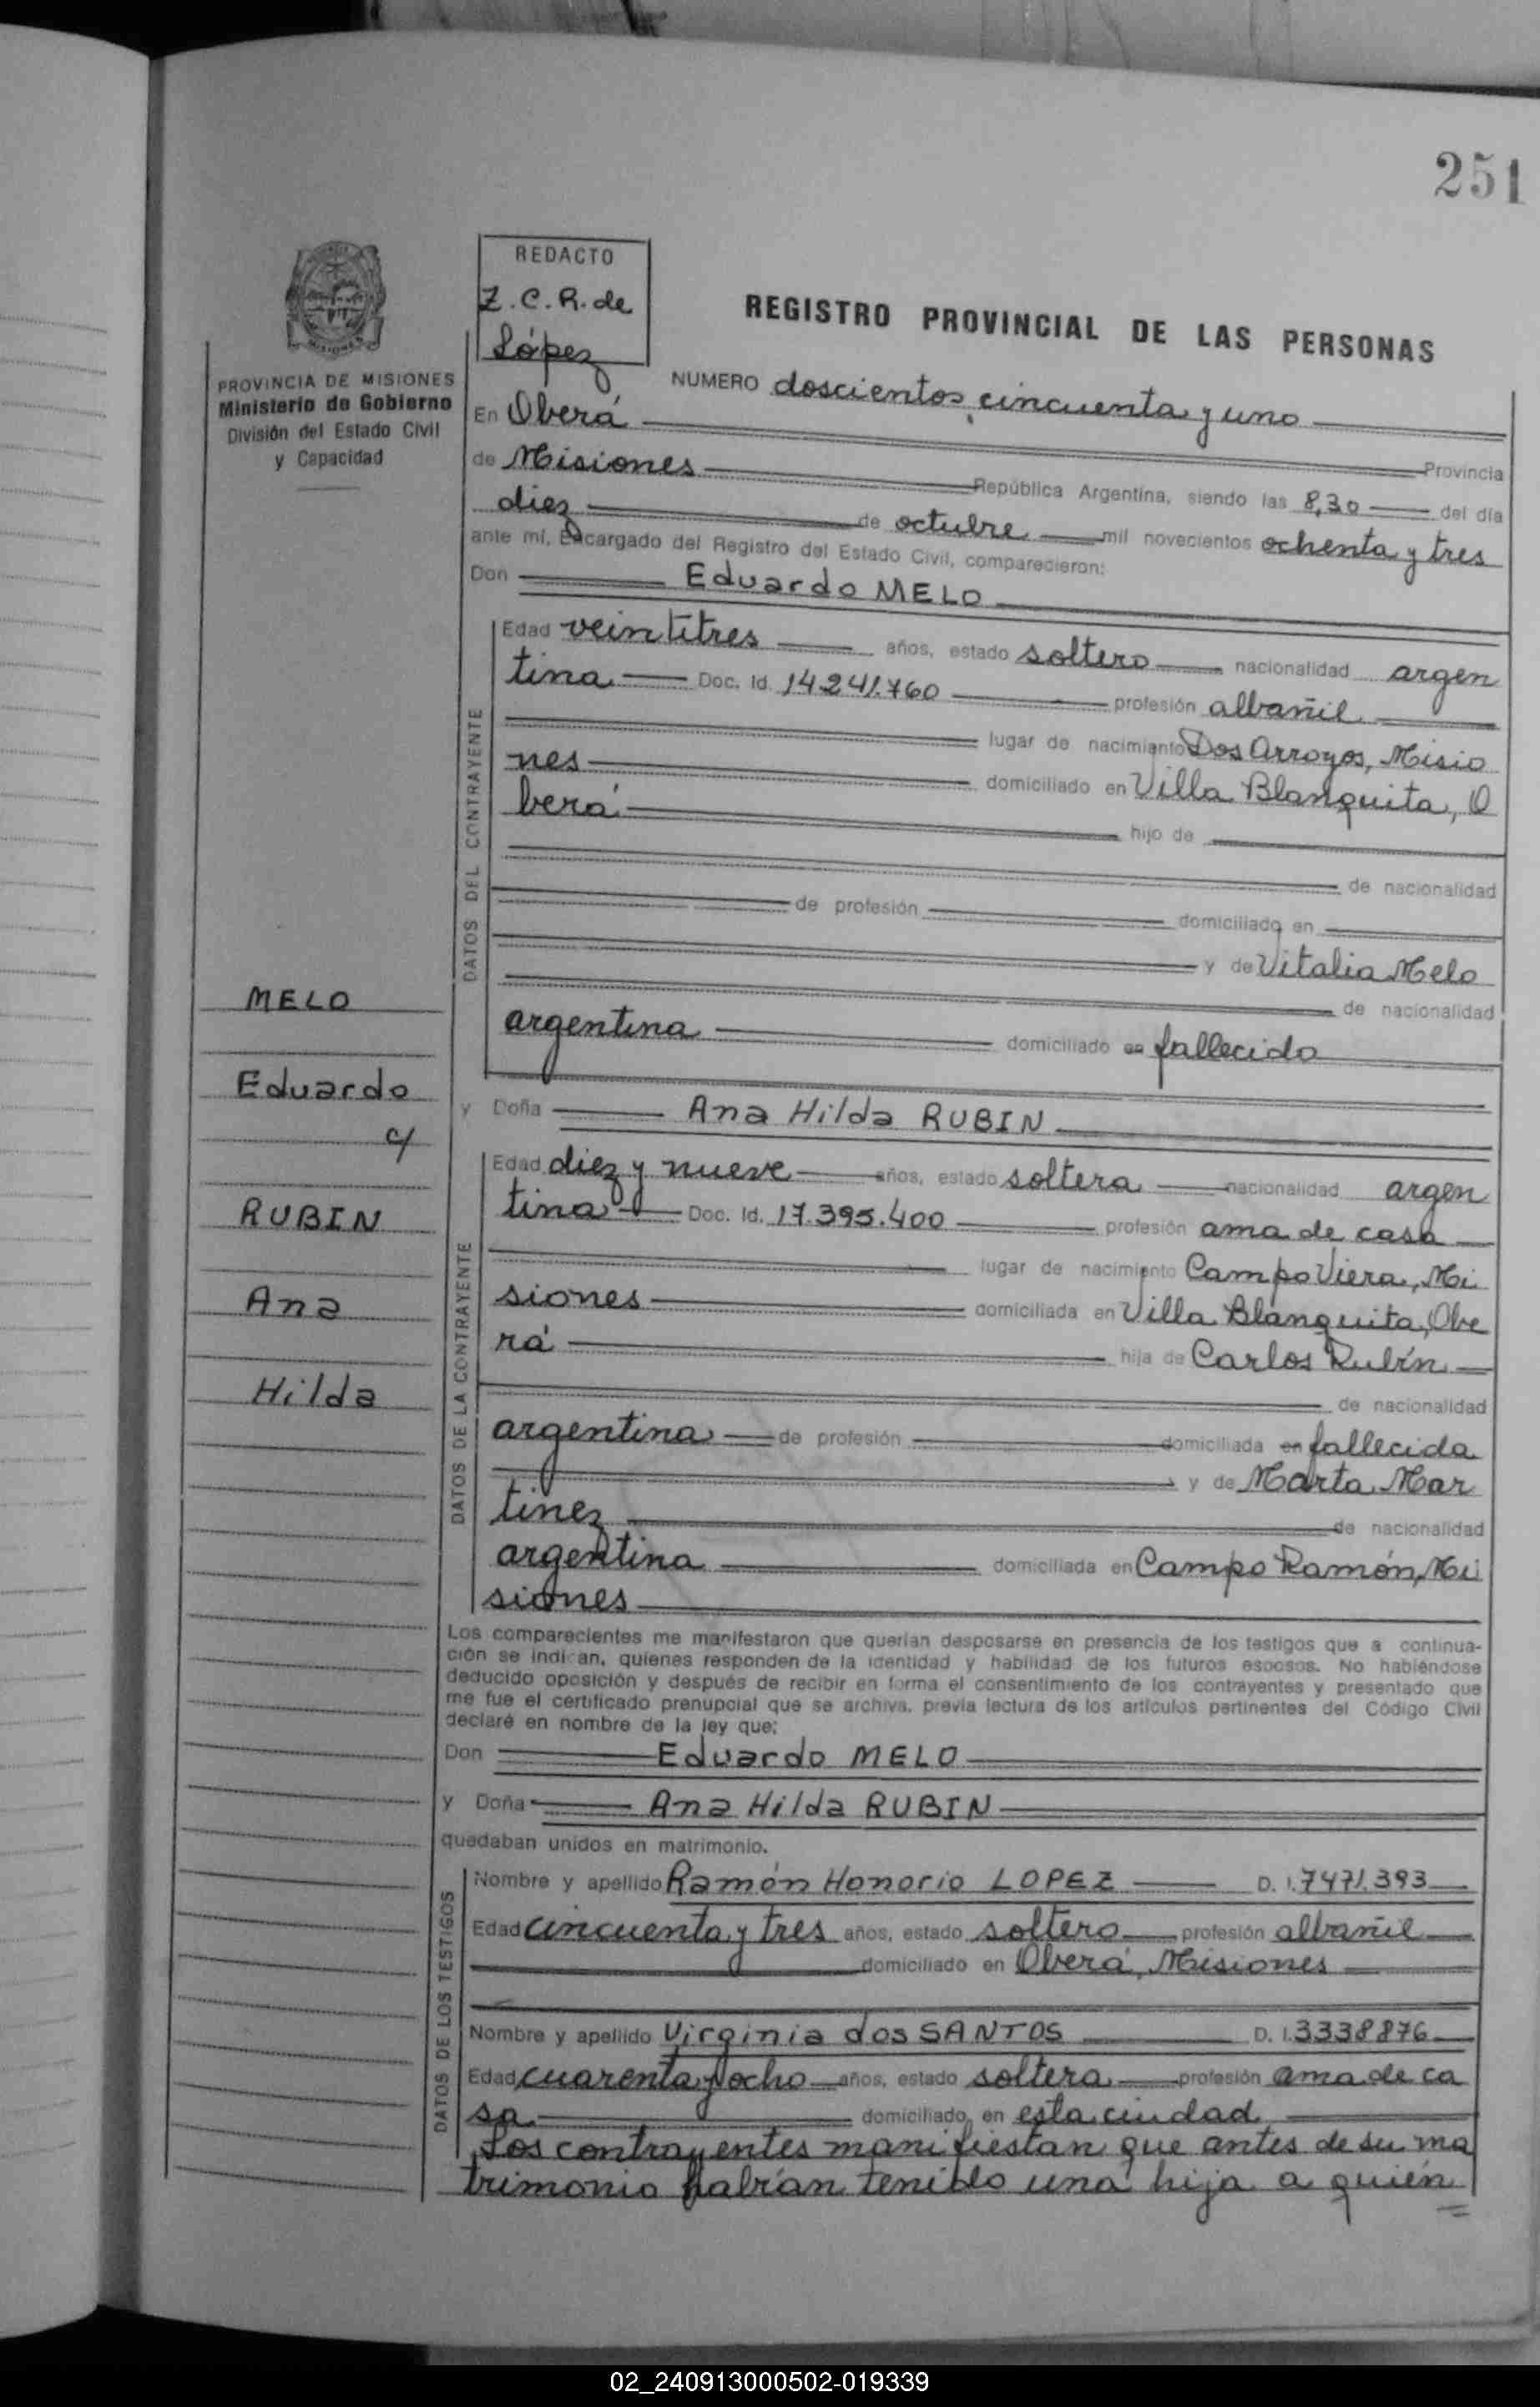 251
REDACTO
Z. C. R. de
López
REGISTRO PROVINCIAL DE LAS PERSONAS
PROVINCIA DE MISIONES
Ministerio de Gobierno
División del Estado Civil
y Capacidad
NUMERO doscientos cincuenta y uno
En Oberá Provincia
de Misiones República Argentina, siendo las 8,30 del día
diez de octubre mil novecientos ochenta y tres
ante mí, Encargado del Registro del Estado Civil, comparecieron:
Don Eduardo MELO
DATOS DEL CONTRAYENTE
Edad veintitres años, estado soltero nacionalidad argen
tina Doc. Id. 14.241.760 profesión albañil
lugar de nacimiento Dos Arroyos, Misio
nes domiciliado en Villa Blanquita, O
berá hijo de
de nacionalidad
de profesión domiciliado en
y de Vitalia Melo
de nacionalidad
argentina domiciliado en fallecido
y Doña Ana Hilda RUBIN
MELO
Eduardo
c/
RUBIN
Ana
Hilda
DATOS DE LA CONTRAYENTE
Edad diez y nueve años, estado soltera nacionalidad argen
tina Doc. Id. 17.395.400 profesión ama de casa
lugar de nacimiento Campo Viera, Mi
siones domiciliada en Villa Blanquita, Obe
rá hija de Carlos Rubín
de nacionalidad
argentina de profesión domiciliada en fallecida
y de Marta Mar
tinez de nacionalidad
argentina domiciliada en Campo Ramón, Mi
siones
Los comparecientes me manifestaron que querían desposarse en presencia de los testigos que a continua-
ción se indican, quienes responden de la identidad y habilidad de los futuros esposos. No habiéndose
deducido oposición y después de recibir en forma el consentimiento de los contrayentes y presentado que
me fue el certificado prenupcial que se archiva, previa lectura de los artículos pertinentes del Código Civil
declaré en nombre de la ley que:
Don Eduardo MELO
y Doña Ana Hilda RUBIN
quedaban unidos en matrimonio.
DATOS DE LOS TESTIGOS
Nombre y apellido Ramón Honorio LOPEZ D. I. 7471.393
Edad cincuenta y tres años, estado soltero profesión albañil
domiciliado en Oberá, Misiones
Nombre y apellido Virginia dos SANTOS D. I. 3338876
Edad cuarenta y ocho años, estado soltera profesión ama de ca
sa domiciliado en esta ciudad
Los contrayentes manifiestan que antes de su ma
trimonio habían tenido una hija a quién
02_240913000502-019339